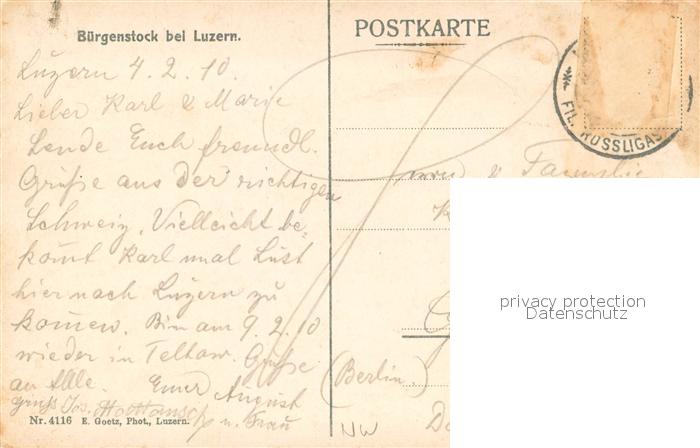 Bürgenstock bei Luzern.
POSTKARTE
Luzern 4.2.10.
Lieber Karl & Marie
Sende Euch freundl.
Grüße aus der richtigen
Schweiz. Vielleicht be-
komt Karl mal Lust
hier nach Luzern zu
komen. Bin am 9.2.10
wieder in Teltow. Grüße
an Alle. Euer August
u. Frau
Gruss Jos.
Nr. 4116 E. Goetz, Phot., Luzern.
FIL. RÖSSLIGAS
& Familie
(Berlin.)
NW
privacy protection
Datenschutz